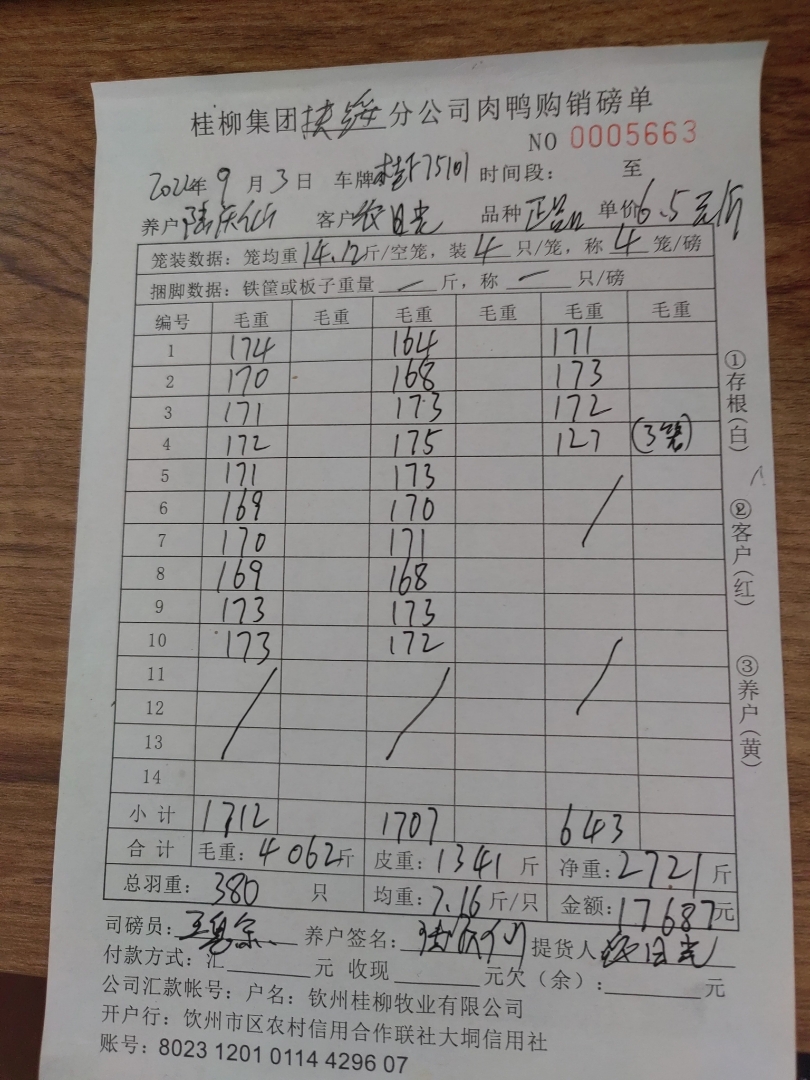 桂柳集团扶绥分公司肉鸭购销磅单
NO 0005663
2022年9月3日 车牌桂F75101 时间段： 至
养户 客户 日 品种 单价6.5元/斤
笼装数据：笼均重14.12斤/空笼，装4只/笼，称4笼/磅
捆脚数据：铁筐或板子重量一斤，称一只/磅
编号 毛重 毛重 毛重 毛重 毛重 毛重
1 174 164 171
2 170 168 173
3 171 173 172
4 172 175 127 (3笼)
5 171 173
6 169 170
7 170 171
8 169 168
9 173 173
10 173 172
11
12
13
14
小计 1712 1707 643
合计 毛重：4062斤 皮重：1341斤 净重：2721斤
总羽重：380只 均重：7.16斤/只 金额：17687元
司磅员： 养户签名： 提货人
付款方式：汇 元 收现 元欠（余）： 元
公司汇款帐号：户名：钦州桂柳牧业有限公司
开户行：饮州市区农村信用合作联社大垌信用社
账号：8023 1201 0114 4296 07
①存根(白)
②客户(红)
③养户(黄)